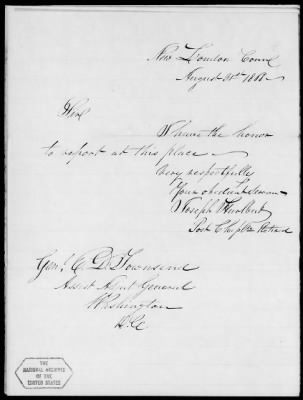 New London Conn
August 31st 1868
Sir
I have the honor
to report at this place
Very respectfully
Your obedient Servant
Joseph Hurlbut
Post Chaplain Retired
Genl. E D Townsend
Assist Adjut General
Washington
D.C
THE
NATIONAL ARCHIVES
OF THE
UNITED STATES